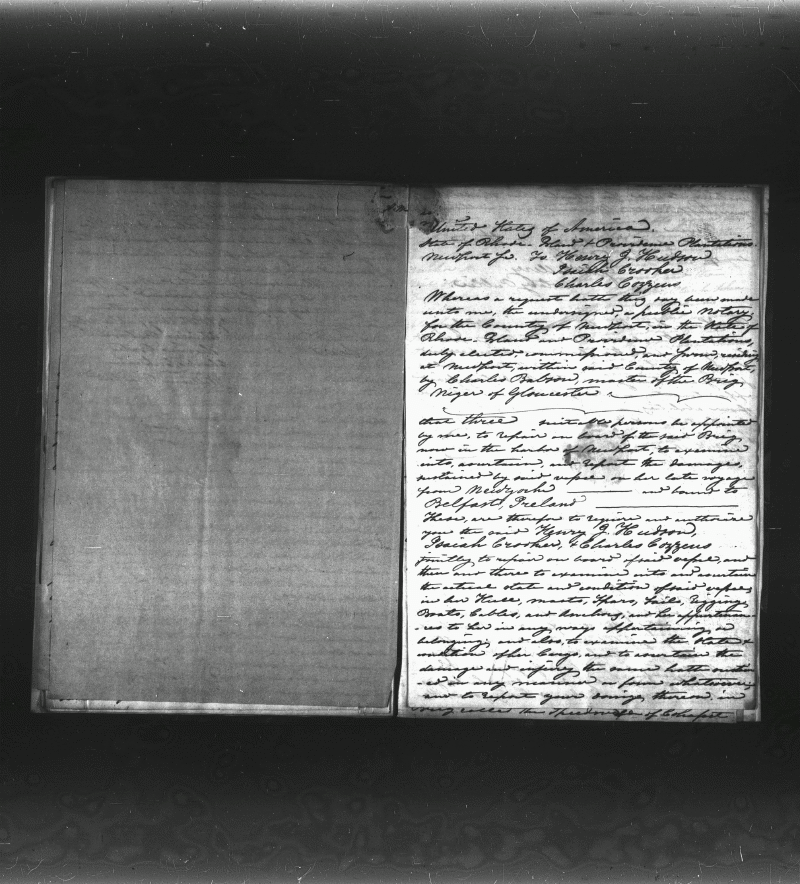 United States of America.
State of Rhode Island & Providence Plantations.
Newport Sc. To Henry J. Hudson
Isaiah Crooker
Charles Cozzens
Whereas a request hath this day been made
unto me, the undersigned a public Notary,
for the County of Newport, in the State of
Rhode Island and Providence Plantations,
duly elected commissioned, and sworn, residing
at Newport, within said County of Newport,
by Charles Babson, master of the Brig
Niger of Gloucester
that three suitable persons be appointed
by me, to repair on board of the said Brig,
now in the harbor of Newport, to examine
into, ascertain, and report the damages,
sustained by said vessel on her late voyage
from New York and bound to
Belfast, Ireland
These, are therefor to require and authorize
you the said Henry J. Hudson,
Isaiah Crooker, & Charles Cozzens
jointly, to repair on board of said vessel, and
then and there to examine into and ascertain
the actual state and condition of said vessel,
in her Hull, masts, Spars, Sails, Rigging,
Boats, Cables, and Anchors, and
-ces to her in any way appertaining, or
belonging, and also, to examine the State &
condition of her Cargo, and to ascertain the
damage and injury the same hath sustain
-ed in any manner or form whatsoever,
and to report your doings therein in